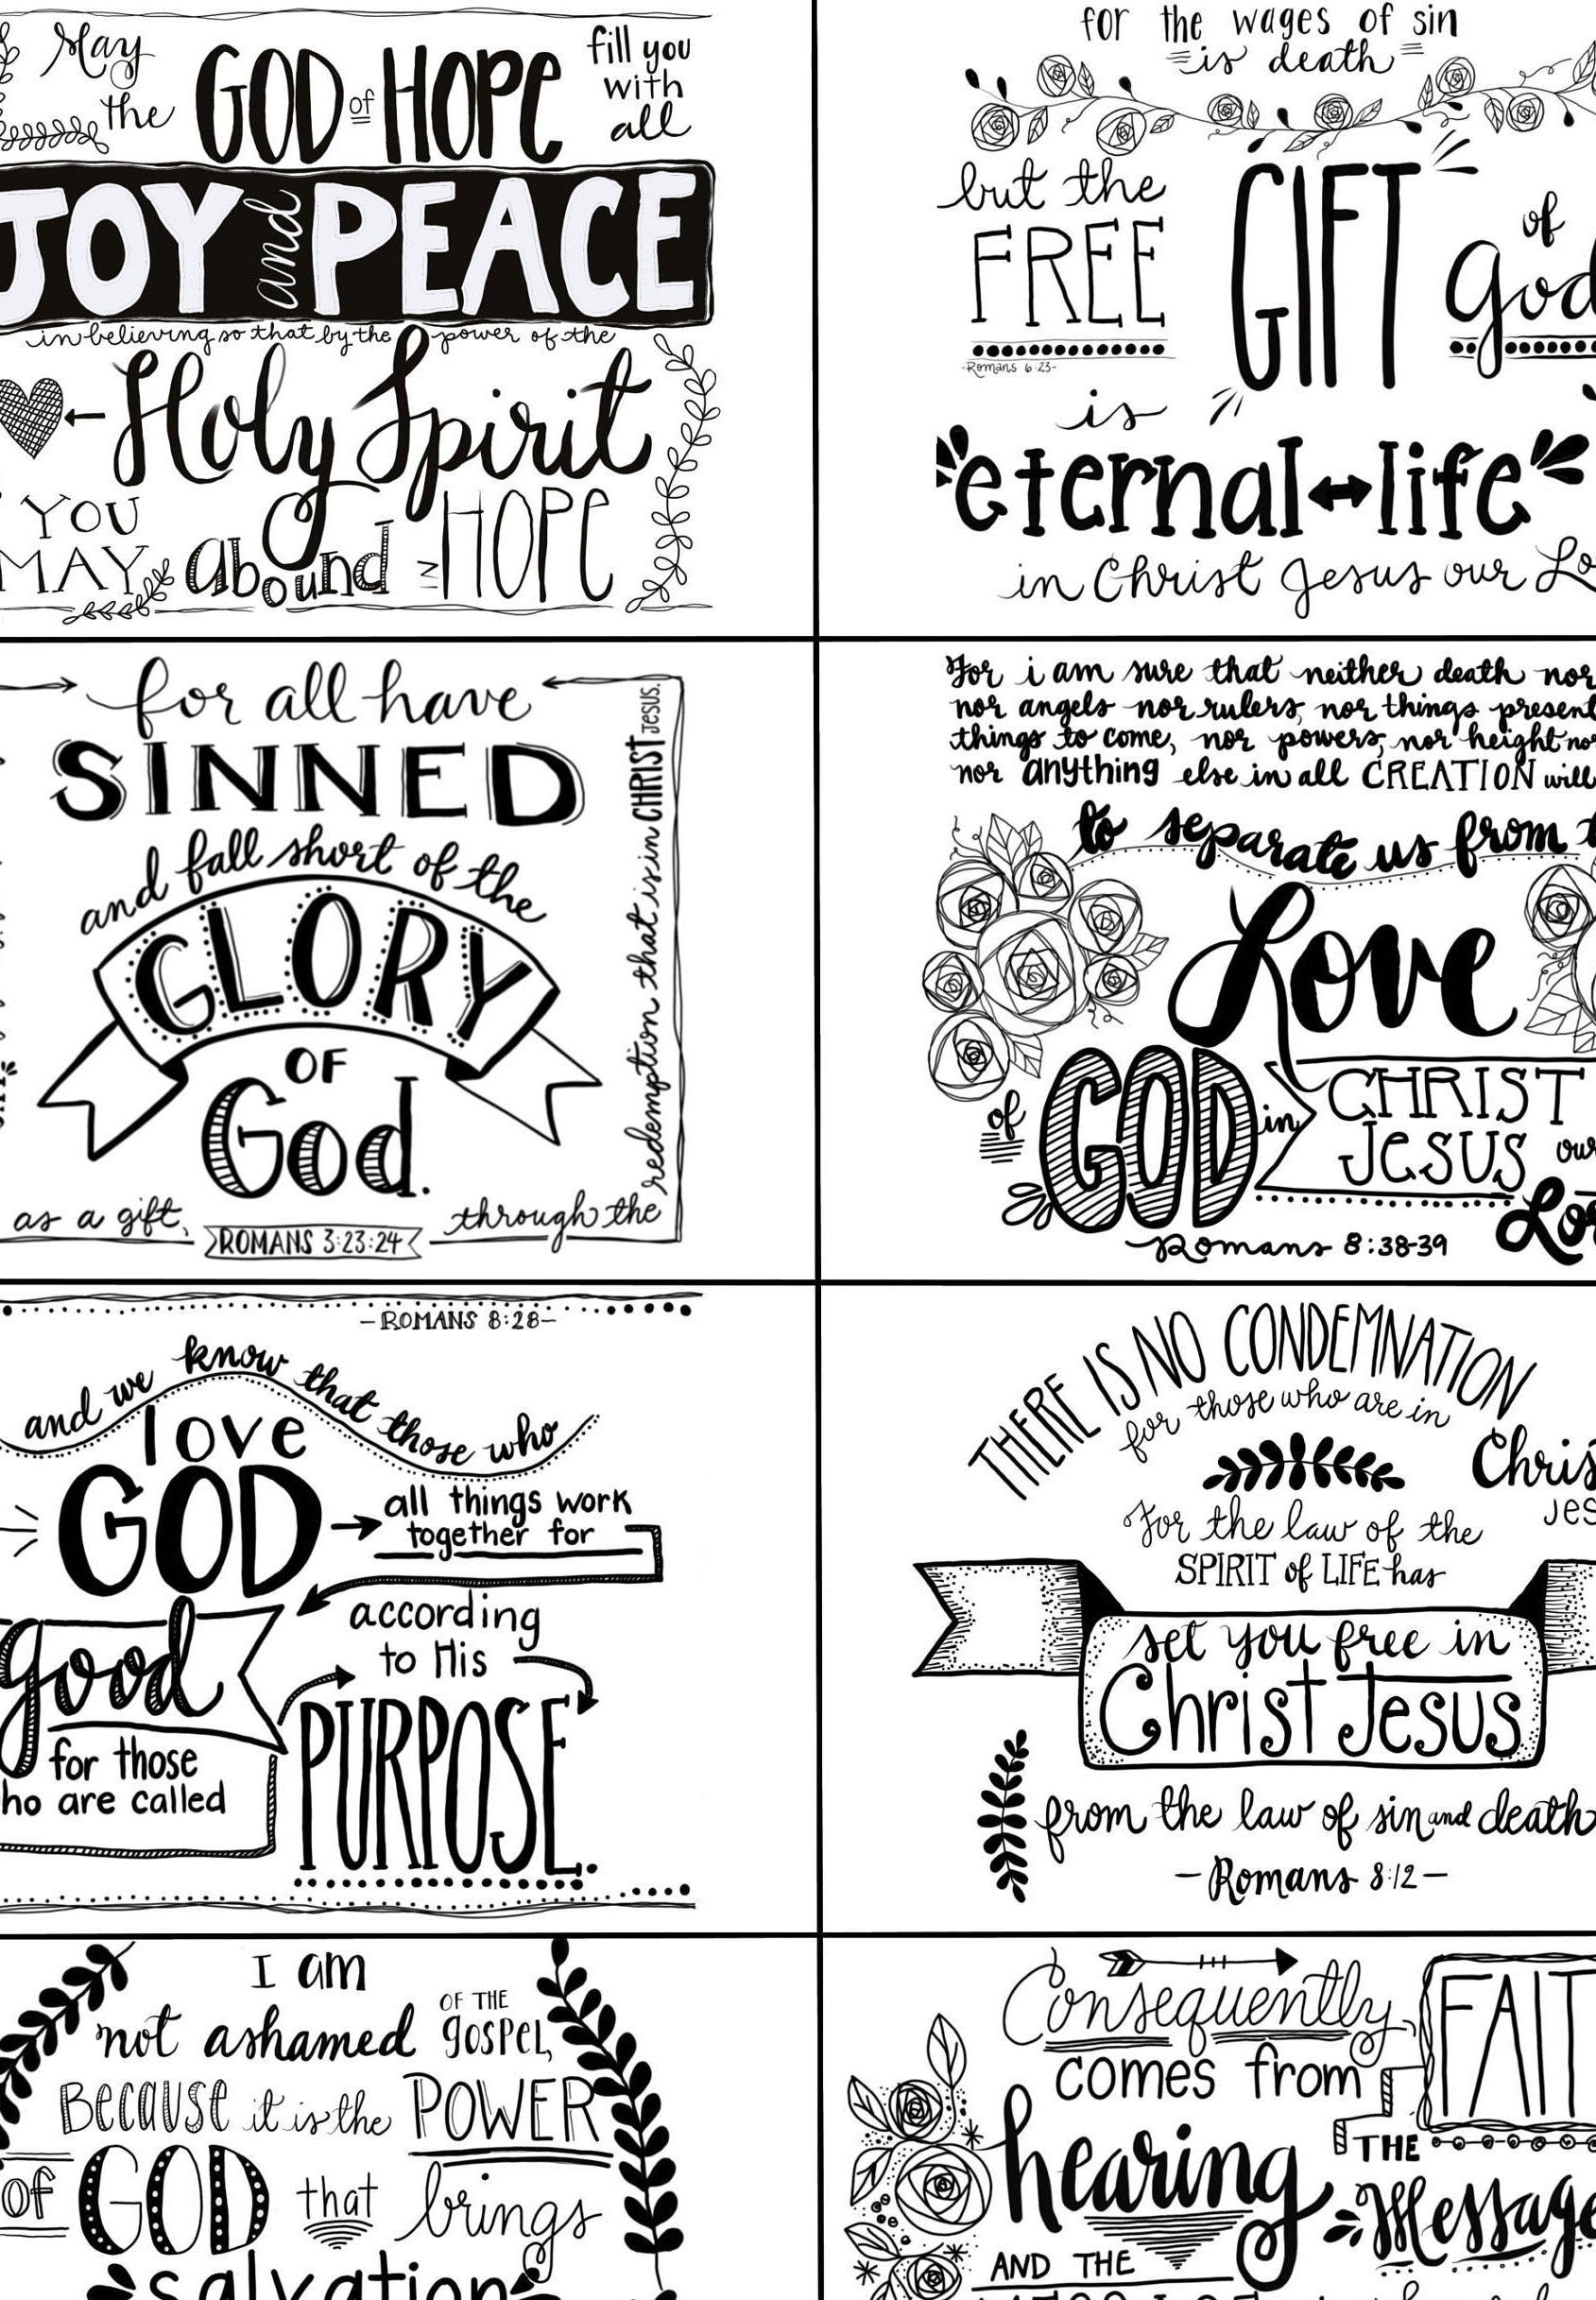 May
the
GOD of HOPE
fill you
with
all
JOY and PEACE
in believing so that by the power of the
Holy Spirit
YOU
MAY abound IN HOPE
for the wages of sin
is death
but the
FREE
GIFT
of
God
-Romans 6:23-
is
eternal life
in Christ Jesus our
for all have
SINNED
and fall short of the
GLORY
OF
God.
as a gift,
ROMANS 3:23:24
through the
redemption that is in CHRIST Jesus.
For i am sure that neither death nor
nor angels nor rulers, nor things present
things to come, nor powers, nor height nor
nor anything else in all CREATION will
to separate us from
Love
of
GOD in
CHRIST
JESUS
our
Romans 8:38-39
-ROMANS 8:28-
and we know that those who
love
GOD
all things work
together for
good
according
to His
for those
who are called
PURPOSE.
THERE IS NO CONDEMNATION
for those who are in
Chris
Jes
For the law of the
SPIRIT of LIFE has
set you free in
Christ Jesus
from the law of sin and death
-Romans 8:12-
I am
not ashamed OF THE
gospel,
Because it is the POWER
of GOD that brings
salvation
Consequently,
FAIT
comes from
hearing
THE
Message
AND THE